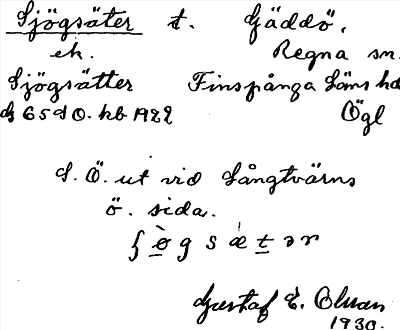 Sjögsäter t. Gäddö.
ek. Regna sn.
Sjögsätter Finspånga Läns hd
dj 65 d O. kb 1922 Ögl
S. Ö. ut vid Långtvärns
ö. sida.
Gustaf E. Olman
1930.